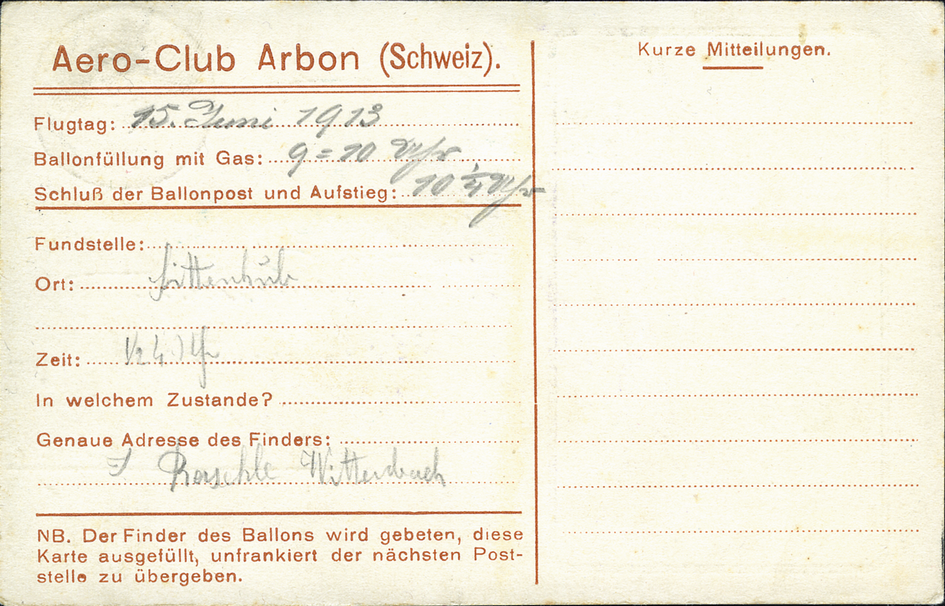 Aero-Club Arbon (Schweiz).
Flugtag: 15. Juni 1913
Ballonfüllung mit Gas: 9 = 10 Uhr
Schluß der Ballonpost und Aufstieg: 10 1/4 Uhr
Fundstelle:
Ort:
Zeit: 1/2 4 Uhr
In welchem Zustande?
Genaue Adresse des Finders:
J Wittenbach
NB. Der Finder des Ballons wird gebeten, diese
Karte ausgefüllt, unfrankiert der nächsten Post-
stelle zu übergeben.
Kurze Mitteilungen.